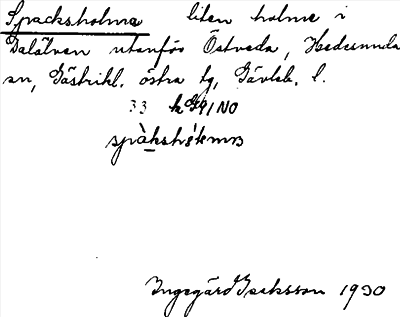 Spacksholma liten holme i
Dalälven utanför Östveda, Hedesunda
sn, Gästrikl. östra tg, Gävleb. l.
33
Ingegärd Isaksson 1930